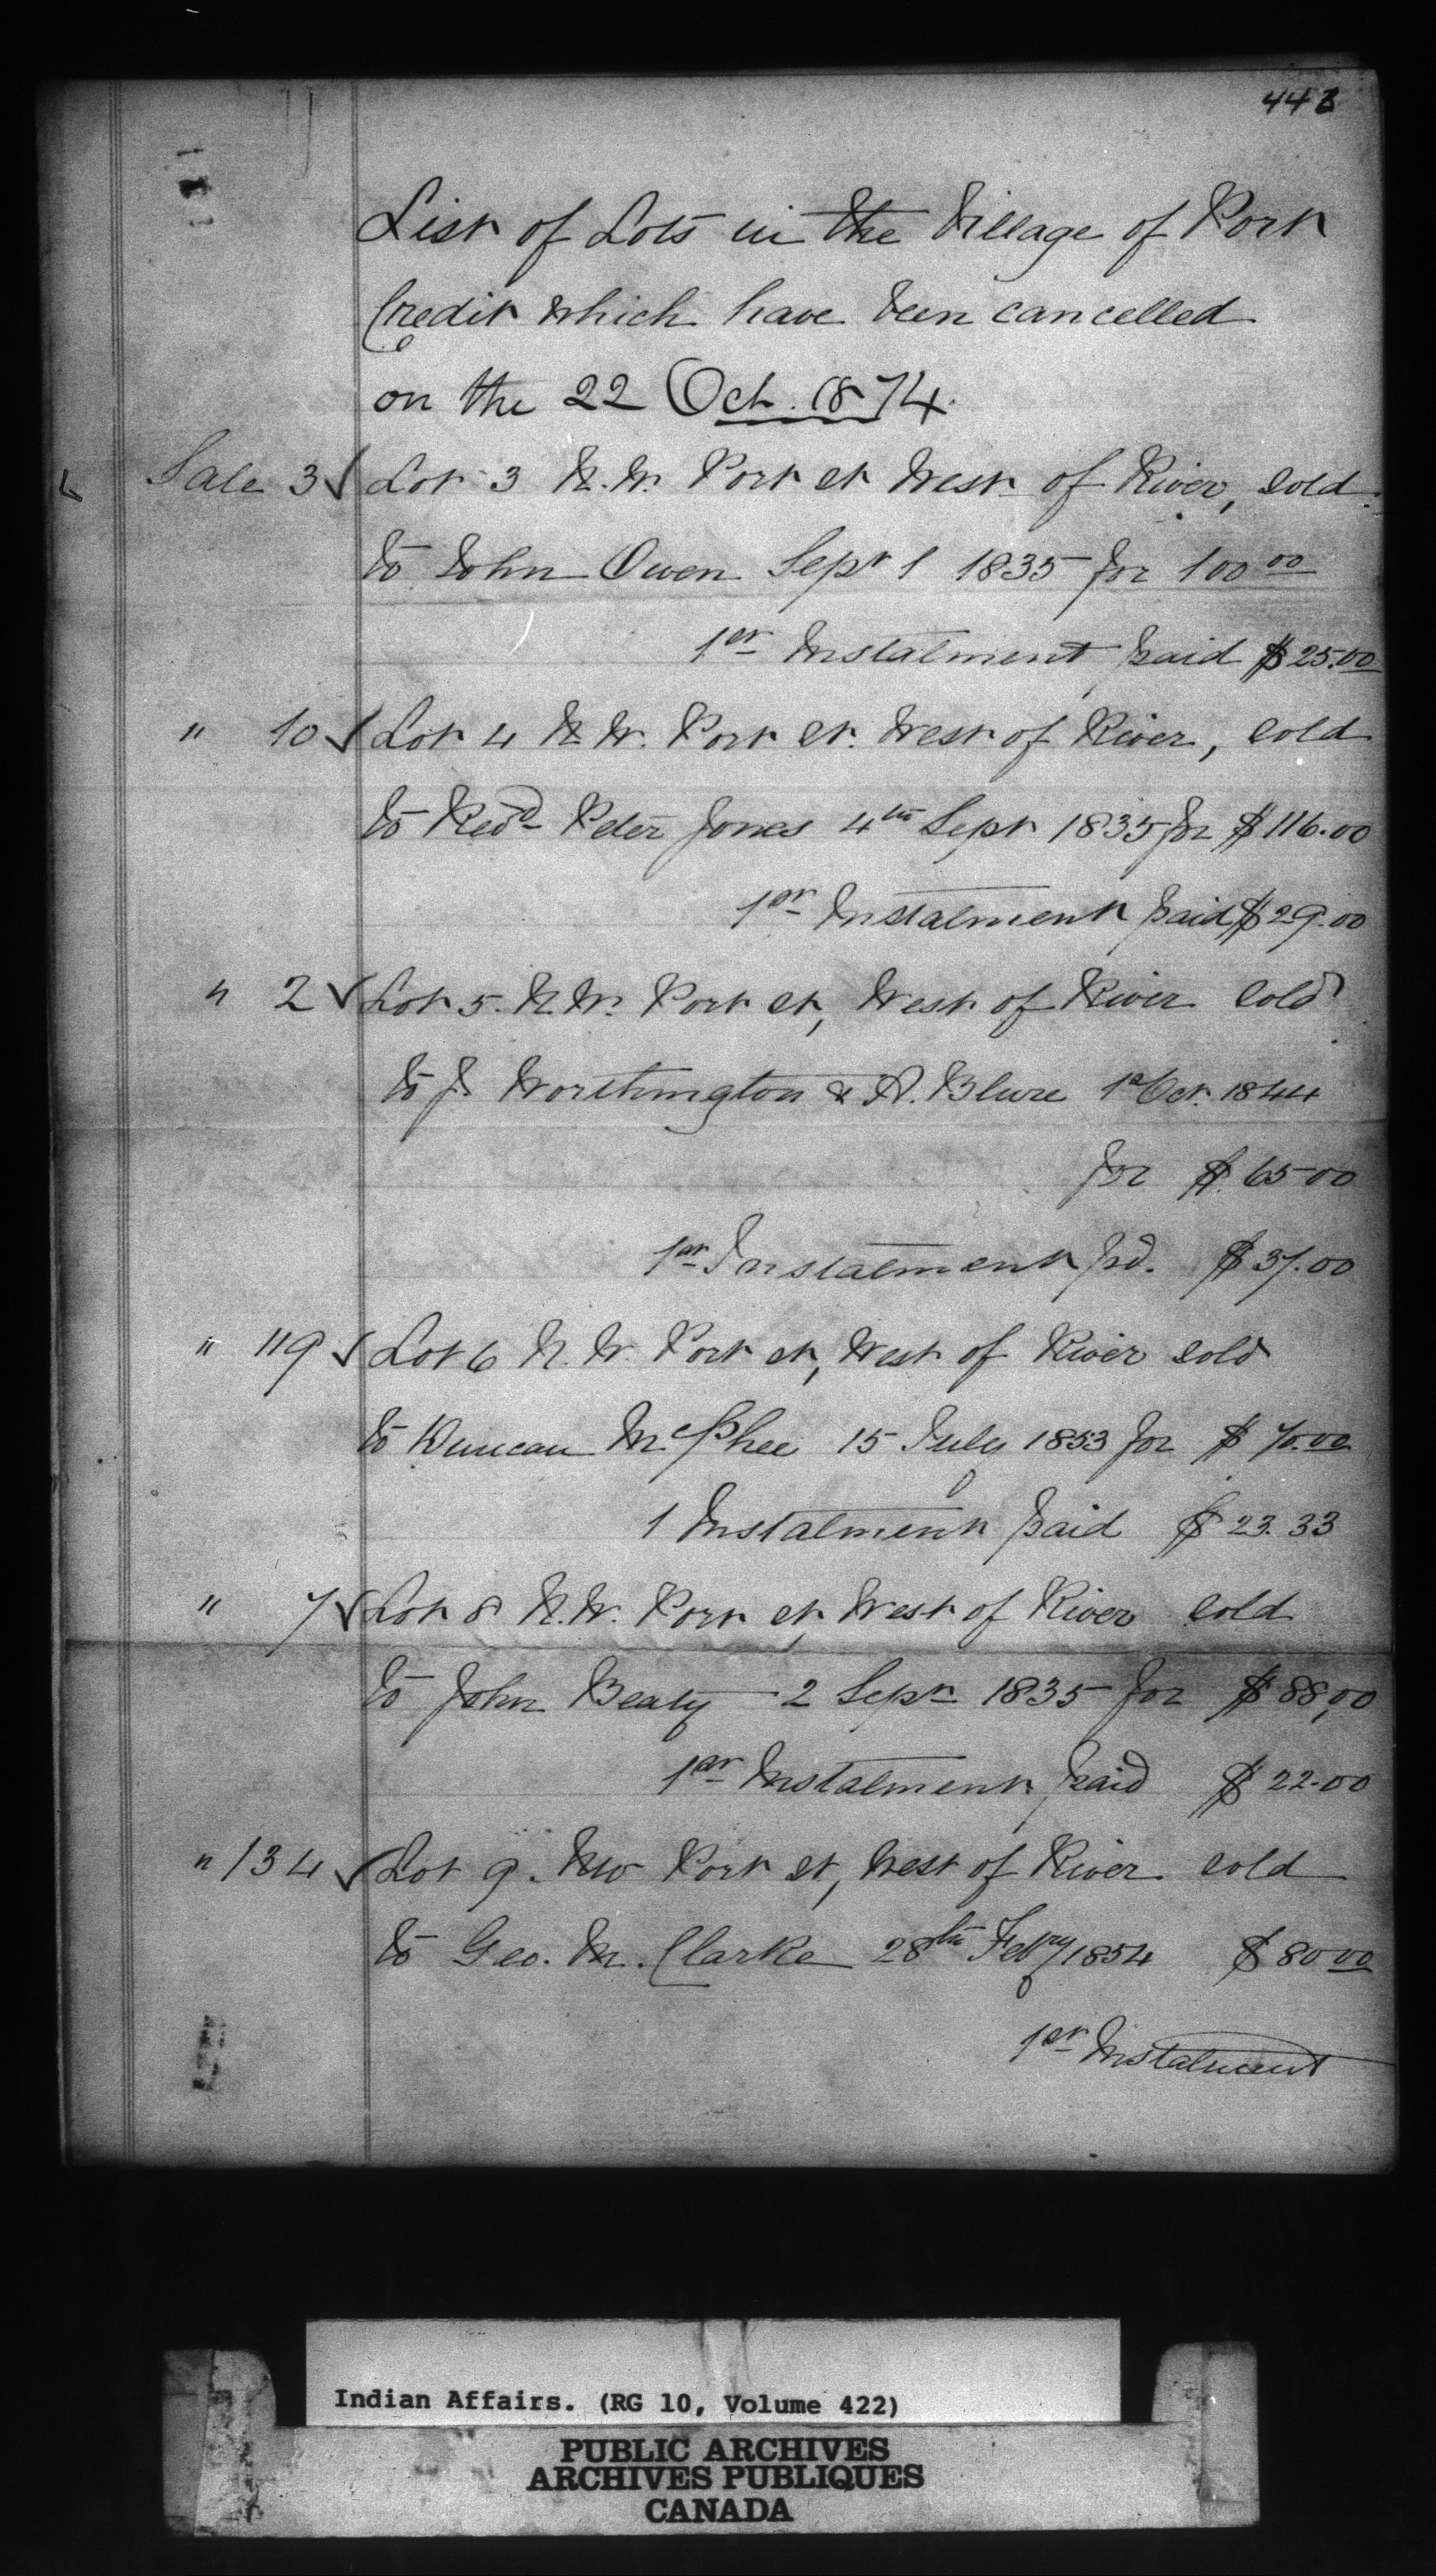 443
List of Lots in the Village of Port
Credit which have been cancelled
on the 22 Oct. 1874.
Sale 3 ✓ Lot 3 N.W. Port st West of River, sold
to John Owen Sept 1 1835 for 100 00
1st Instalment paid $25.00
" 10 ✓ Lot 4 N.W. Port st. West of River, sold
to Revd Peter Jones 4th Sept 1835 for $116.00
1st Instalment paid $29.00
" 2 ✓ Lot 5. N.W. Port st, West of River sold
to J. Worthington & A. 1st Oct. 1844
for $65 00
1st Instalment pd. $37.00
" 119 ✓ Lot 6 N.W. Port st, West of River sold
to Duncan McPhee 15 July 1853 for $70.00
1 Instalment paid $23.33
" 7 ✓ Lot 8 N.W. Port st, West of River sold
to John Beaty 2 Sept 1835 for $88,00
1st Instalment paid $22.00
" 134 ✓ Lot 9. NW Port st, West of River sold
to Geo. M. Clarke 28th Febry 1854 $80 00
1st Instalment
Indian Affairs. (RG 10, Volume 422)
PUBLIC ARCHIVES
ARCHIVES PUBLIQUES
CANADA